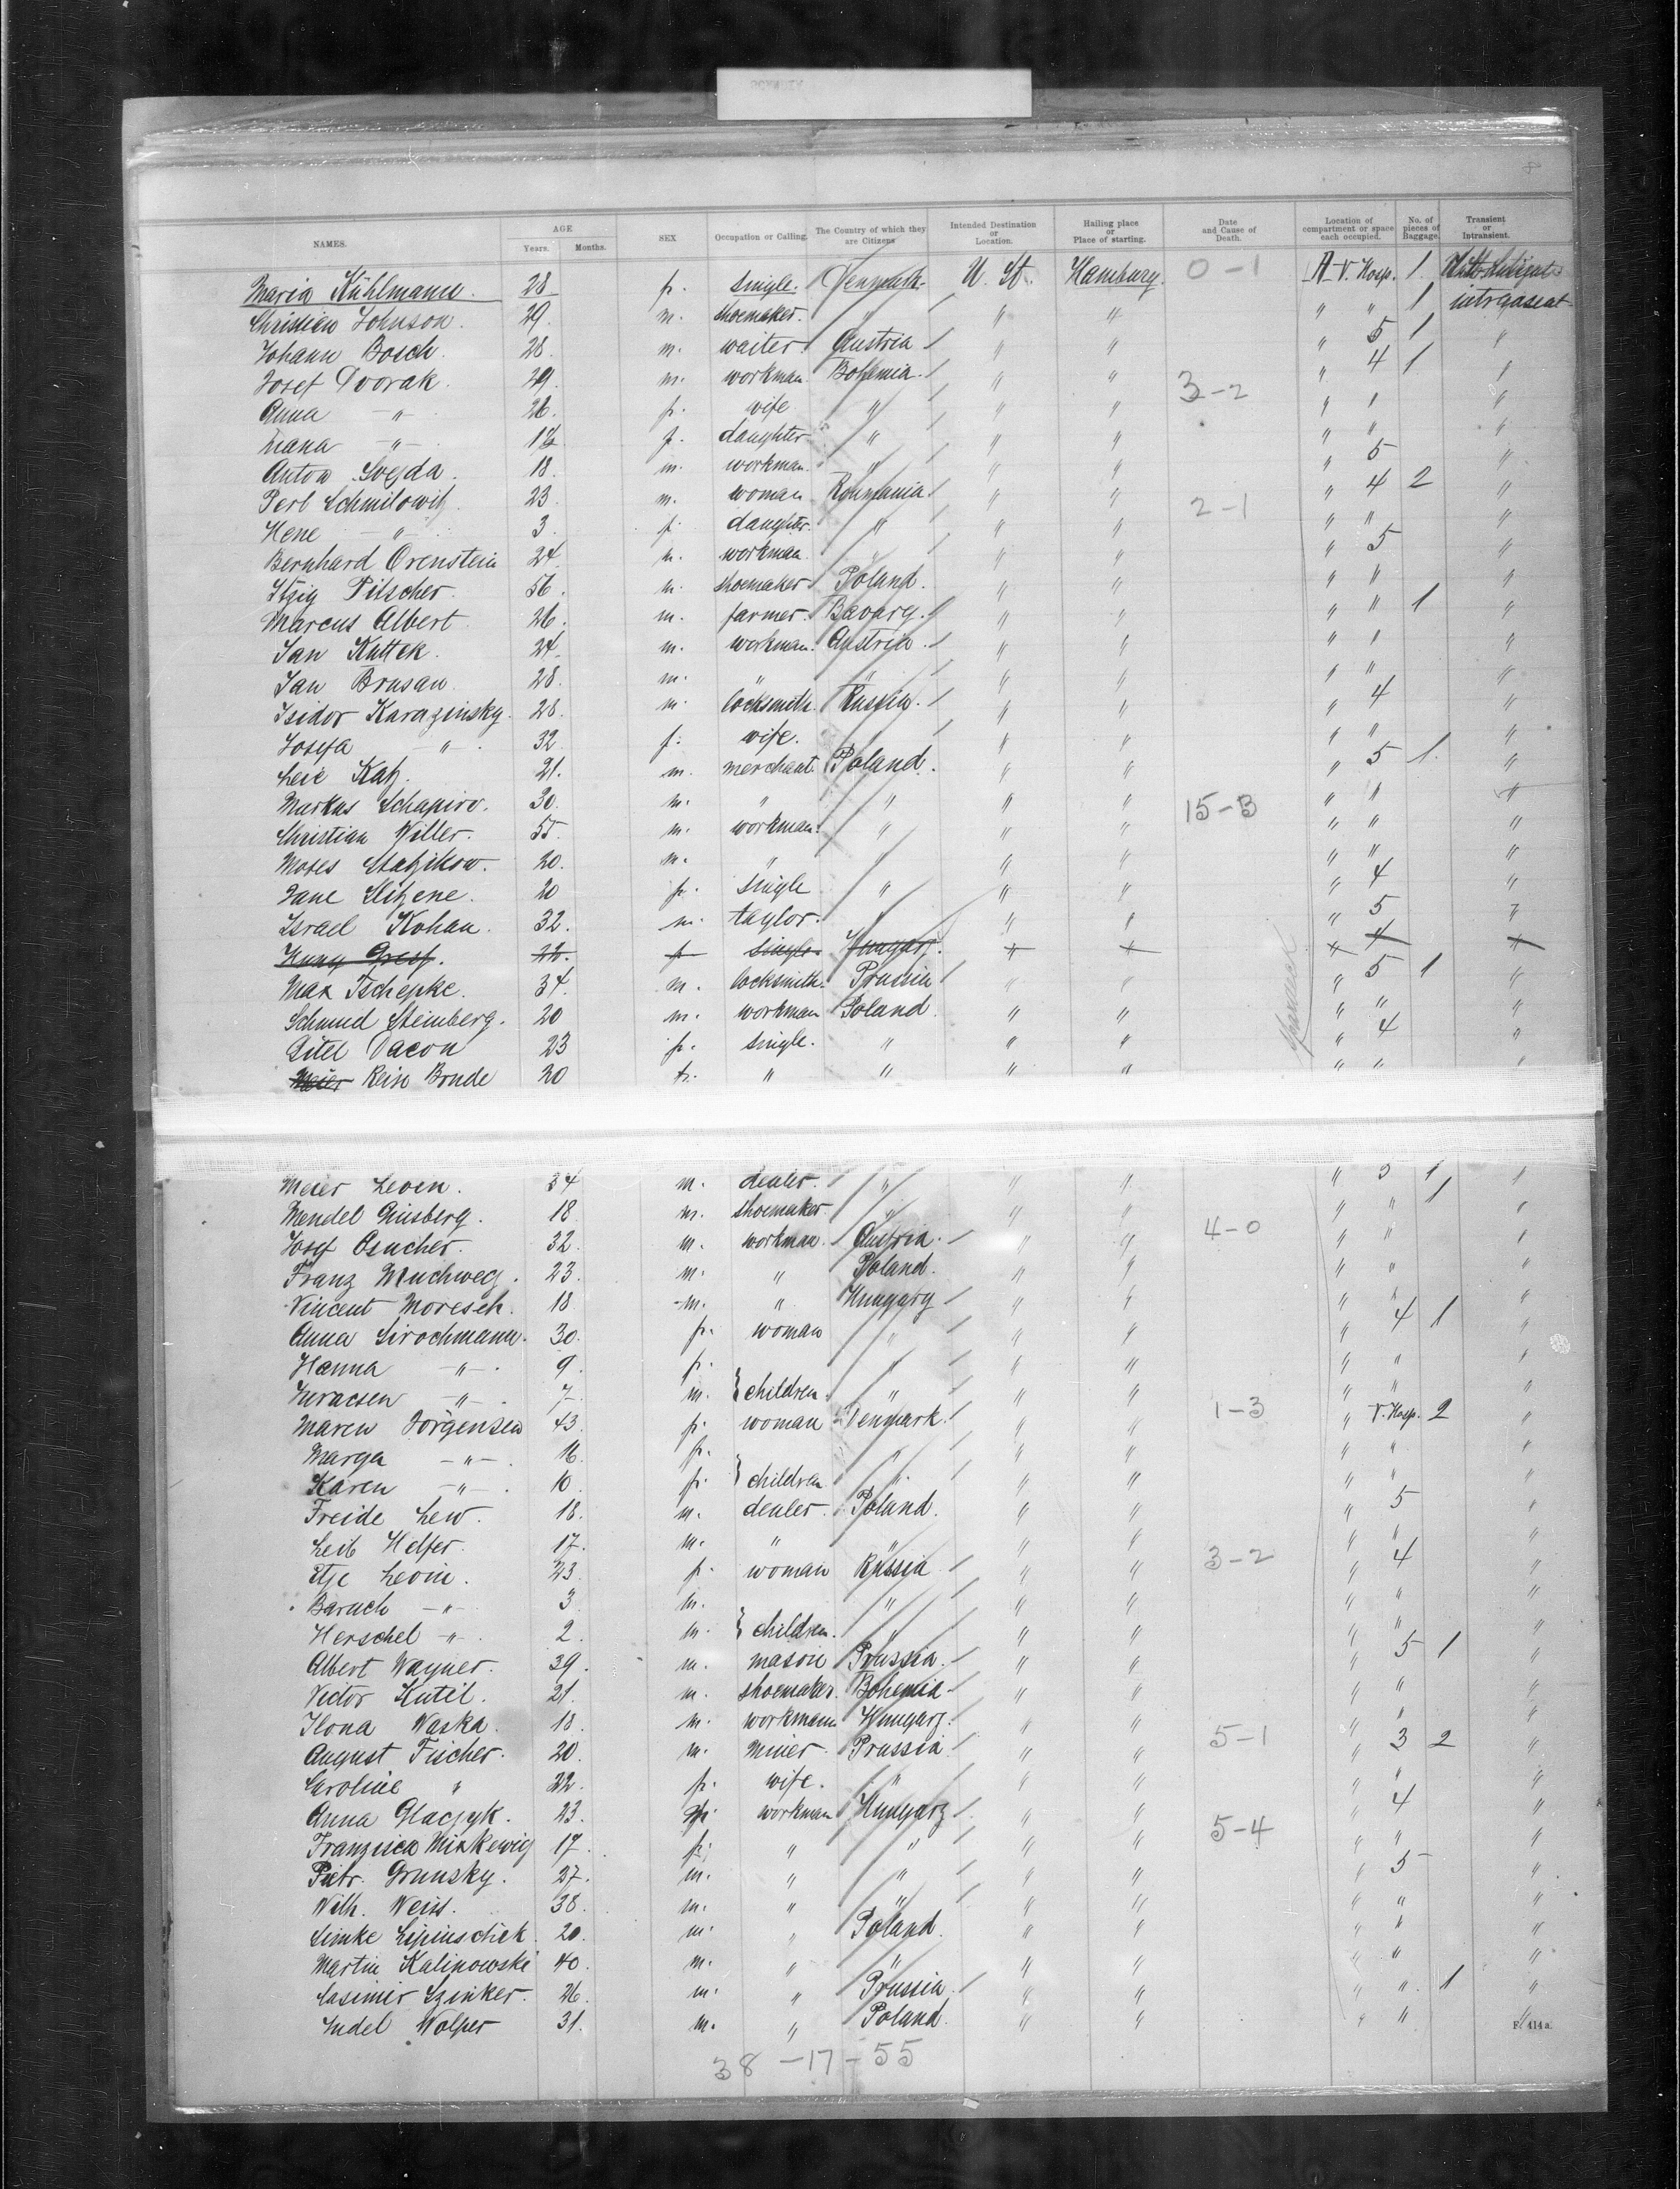 NAMES. AGE Years. Months. SEX Occupation or Calling. The Country of which they are Citizens Intended Destination or Location. Hailing place or Place of starting. Date and Cause of Death. Location of compartment or space each occupied. No. of pieces of Baggage. Transient or Intransient.
Maria Kühlmann. 28 f. single. Denmark. U. St. Hamburg. 0-1 A V. Hosp. 1
Christian Johnson. 29. m. shoemaker. " " " " " 1
Johann Bosch. 28. m. waiter Austria " " " 5 1 "
Josef Dvorak. 29. m. workman Bohemia. " " 3-2 " 4 1 "
Anna -"- 26. f. wife " " " " " "
-"- f. daughter " " " " " "
Anton 18. m. workman. " " " " 5 "
Perl Schmilowitz 23. m. woman Roumania " " 2-1 " 4 2 "
Hene -"- 3. f. daughter. " " " " " "
Bernhard Orenstein 24. m. workman. " " " " 5 "
Itzig Pilscher. 56. m. shoemaker Poland. " " " " "
Marcus Albert 26. m. farmer. " " " " 1 "
Jan Kuttek. 24. m. workman. Austria. " " " " "
Jan Brusan 28. m. " " " " " " "
Isidor Karazinsky. 28. m. locksmith. Russia. " " " 4 "
Josefa -"- 32 f. wife. " " " " " "
Leie Katz. 21. m. merchant Poland. " " " 5 1. "
Markus Schapiro. 30. m. " " " " 15-3 " " "
Christian Willer. 55. m. workman. " " " " " "
Moses 20. m. " " " " " " "
20 f. single " " " " 4 "
Israel Kohan. 32. m. taylor. " " " " 5 "
22. f single. Hungary. " " " 4 "
Max Tschepke. 34. m. locksmith. Prussia " " " 5 1 "
Schmul Steinberg. 20 m. workman Poland " " " " "
Gitel Dacon 23 f. single. " " " " 4 "
Meier Rein Brude 20 f. " " " " " " "
Meier Leven. 34 m. dealer. " " " " 5 1 "
Mendel Ginsberg. 18. m. shoemaker " " " " " 1 "
Josef Osucher. 32. m. workman. Austria. " " 4-0 " " "
Franz 23. m. " Poland. " " " " "
Vincent Moresch. 18 m. " Hungary " " " " "
Anna Sirochmann. 30. f. woman " " " " 4 1 "
Hanna -"- 9. f. " " " " " "
-"- 7. m. } children. " " " " " "
Maren Jörgensen 43. f. woman Denmark. " " 1-3 " V. Hosp. 2 "
Marga -"- 16. f. " " " " " "
Karen -"- 10. f. } children " " " " " "
Freide Lew. 18. m. dealer. Poland. " " " 5 "
Leib Helfer. 17. m. " " " " " " "
Etje Levin. 23. f. woman Russia " " 3-2 " 4 "
Baruch -"- 3. m. " " " " " "
Herschel -"- 2. m. } children. " " " " " "
Albert Wagner. 39. m. mason Prussia. " " " 5 1 "
Victor Kutil. 21. m. shoemaker. Bohemia " " " " "
Ilona Waska. 18. m. workmann Hungary. " " " " "
August Fischer. 20. m. Miner. Prussia " " 5-1 " 3 2 "
Caroline " 22. f. wife. " " " " " "
Anna Glaczyk. 23. f. workman Hungary " " " 4 "
Franzisca Mizkewiz 17. f. " " " " 5-4 " " "
Pietr. Grunsky. 27. m. " " " " " 5 "
Wilh. Weiss. 38. m. " " " " " " "
Simke 20. m. " Poland. " " " " "
Martin Kalinowski 40. m. " " " " " " "
Casimir Szinker. 26. m. " Prussia. " " " " 1 "
Judel Wolper 31. m. " Poland. " " " " "
F. 414 a.
38 - 17 - 55